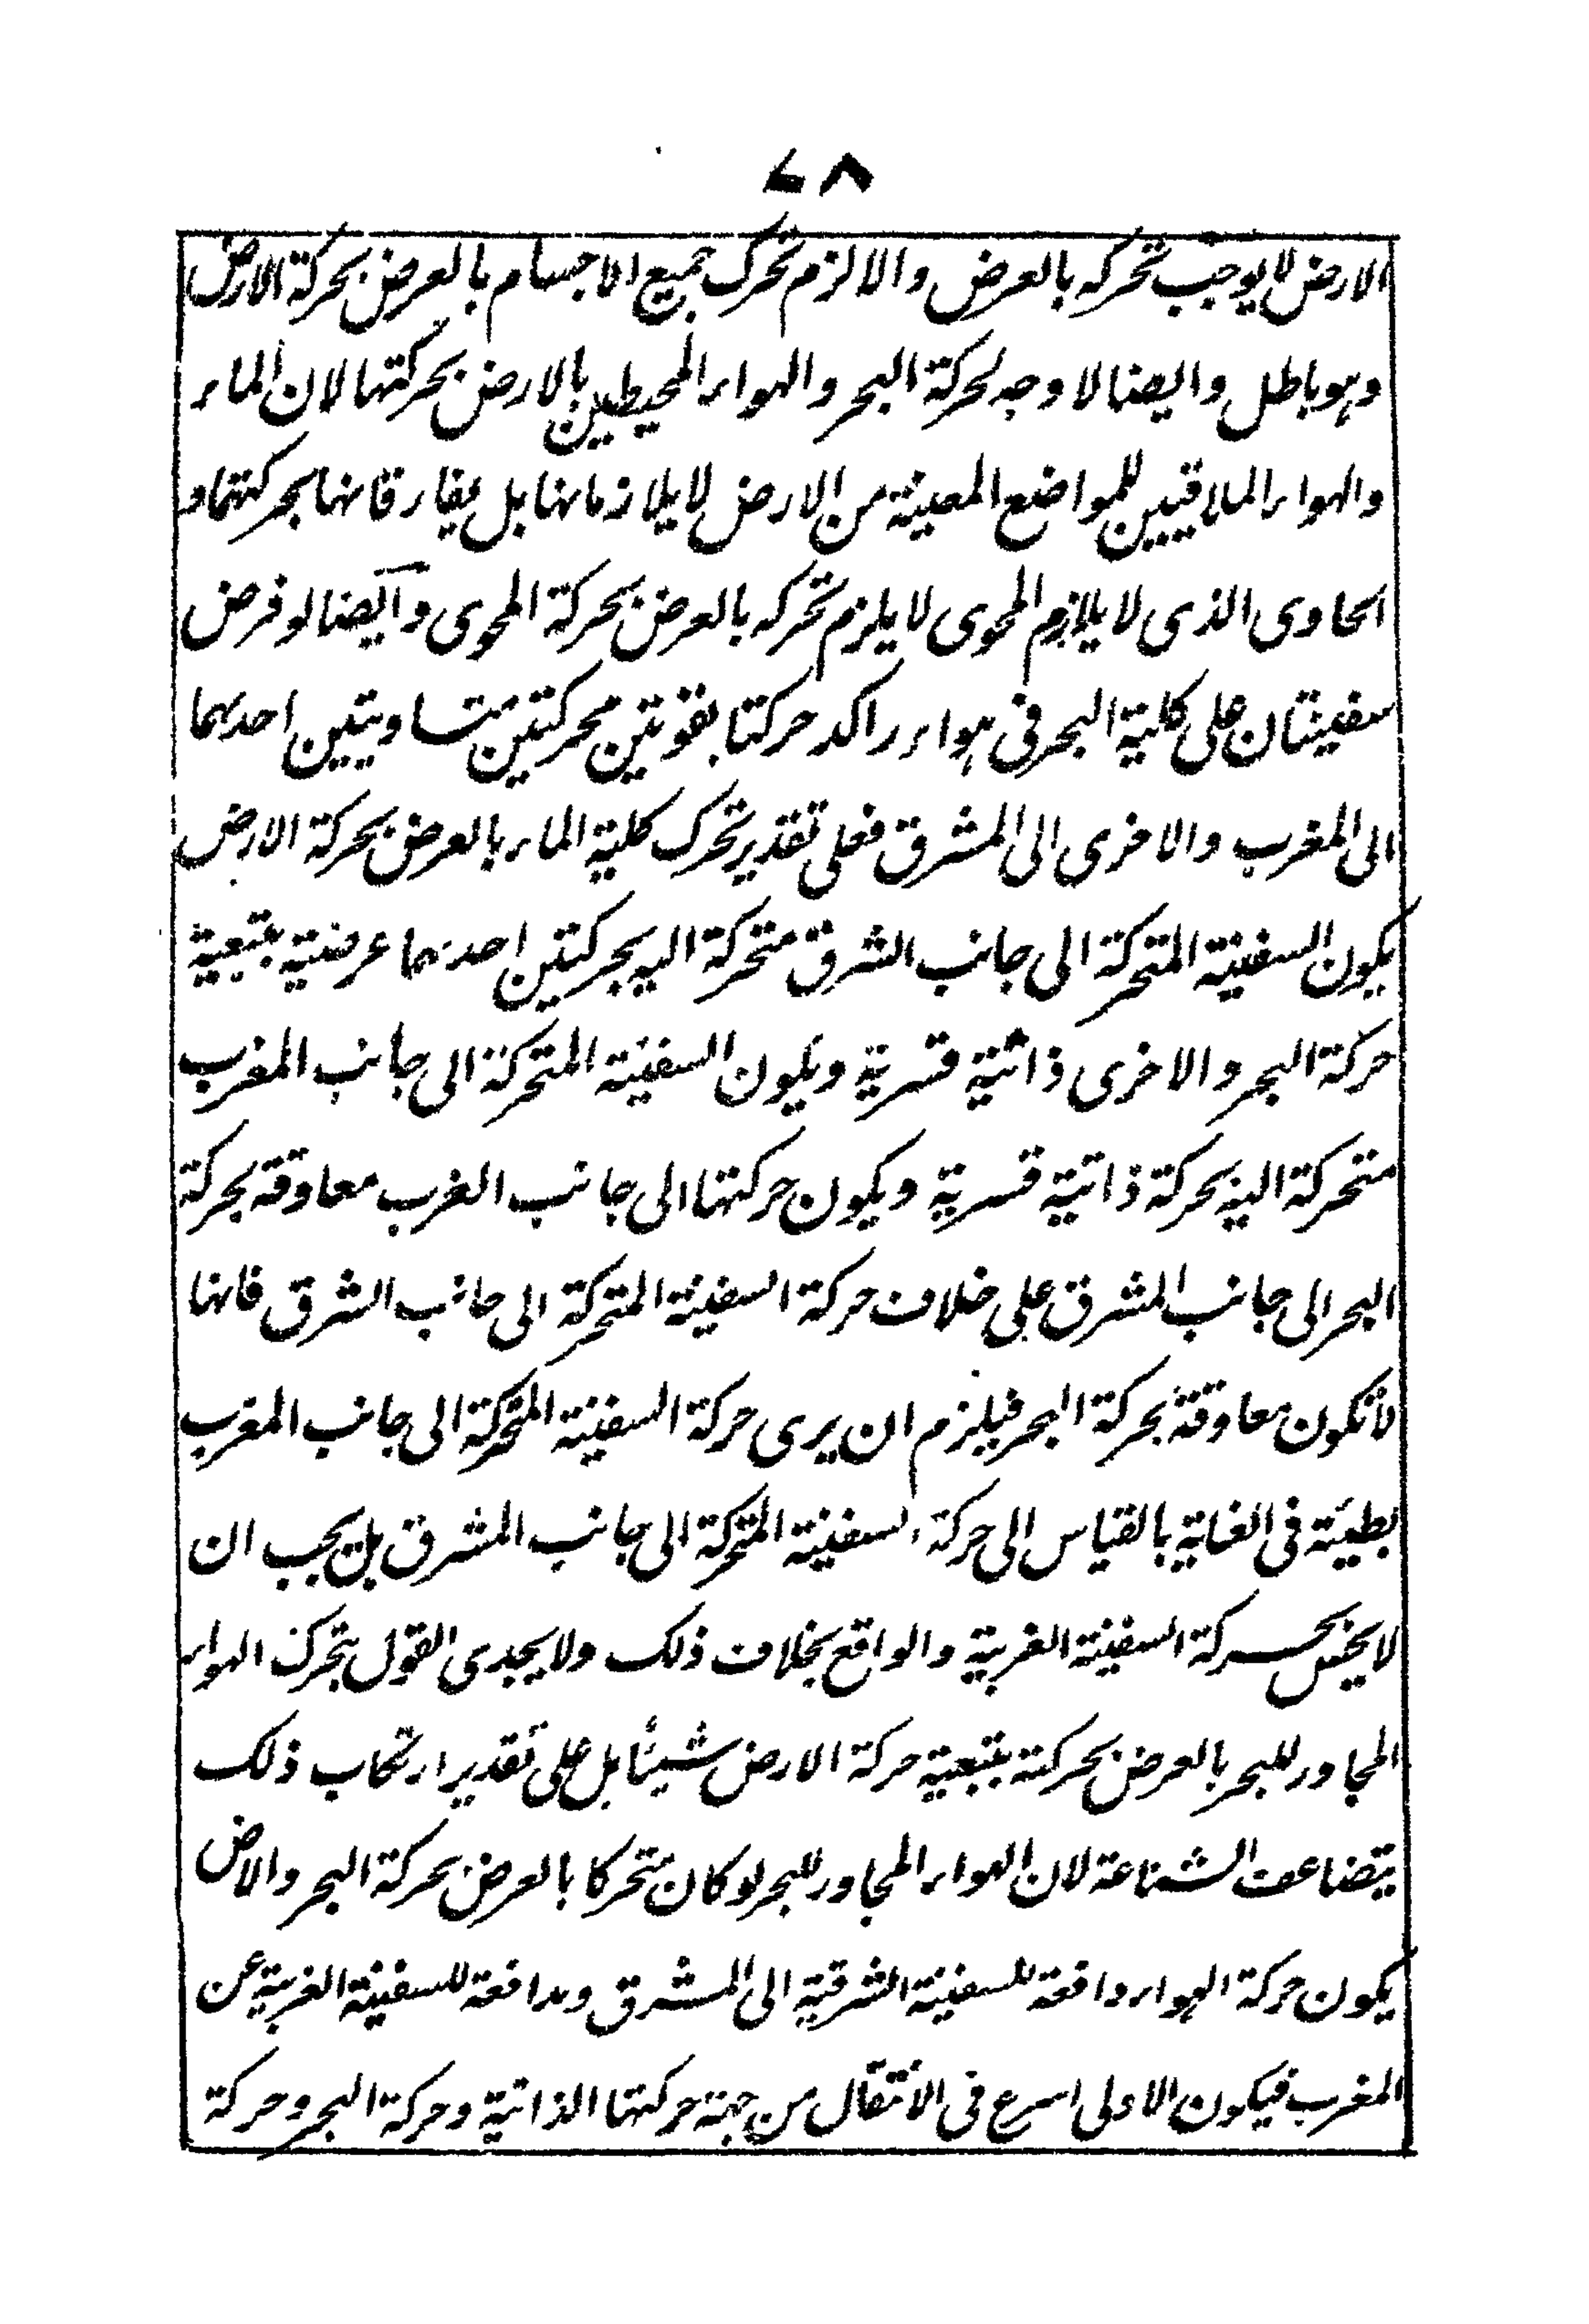 ٧٨
الارض لا يوجب تحركه بالعرض والا لزم تحرك جميع الاجسام بالعرض بحركة الارض
وهو باطل وايضا لا وجه لحركة البحر والهواء المحيطين بالارض بحركتها لان الماء
والهواء الملاقيين للمواضع المعينة من الارض لا يلازمانها بل يفارقانها بحركتهما و
الحاوى الذى لا يلازم المحوى لا يلزم تحركه بالعرض بحركة المحوى وايضا لو فرض
سفينتان على كلية البحر فى هواء راكد حركتا بقوتين محركتين متساويتين احدهما
الى المغرب والاخرى الى المشرق فعلى تقدير تحرك كلية الماء بالعرض بحركة الارض
يكون السفينة المتحركة الى جانب الشرق متحركة اليه بحركتين احدهما عرضية بتبعية
حركة البحر والاخرى ذاتية قسرية ويكون السفينة المتحركة الى جانب المغرب
متحركة اليه بحركة ذاتية قسرية ويكون حركتها الى جانب الغرب معاوقة بحركة
البحر الى جانب المشرق على خلاف حركة السفينة المتحركة الى جانب الشرق فانها
لا تكون معاوقة بحركة البحر فيلزم ان يرى حركة السفينة المتحركة الى جانب المغرب
بطيئة فى الغاية بالقياس الى حركة السفينة المتحركة الى جانب المشرق بل يجب ان
لا يحس بحركة السفينة الغربية والواقع بخلاف ذلك ولا يجدى القول بتحرك الهواء
المجاور للبحر بالعرض بحركته بتبعية حركة الارض شيئا بل على تقدير ارتكاب ذلك
يتضاعف الشناعة لان الهواء المجاور للبحر لو كان متحركا بالعرض بحركة البحر والارض
يكون حركة الهواء دافعة للسفينة الشرقية الى المشرق ومدافعة للسفينة الغربية عن
المغرب فيكون الاولى اسرع فى الانتقال من جهة حركتها الذاتية وحركة البحر وحركة